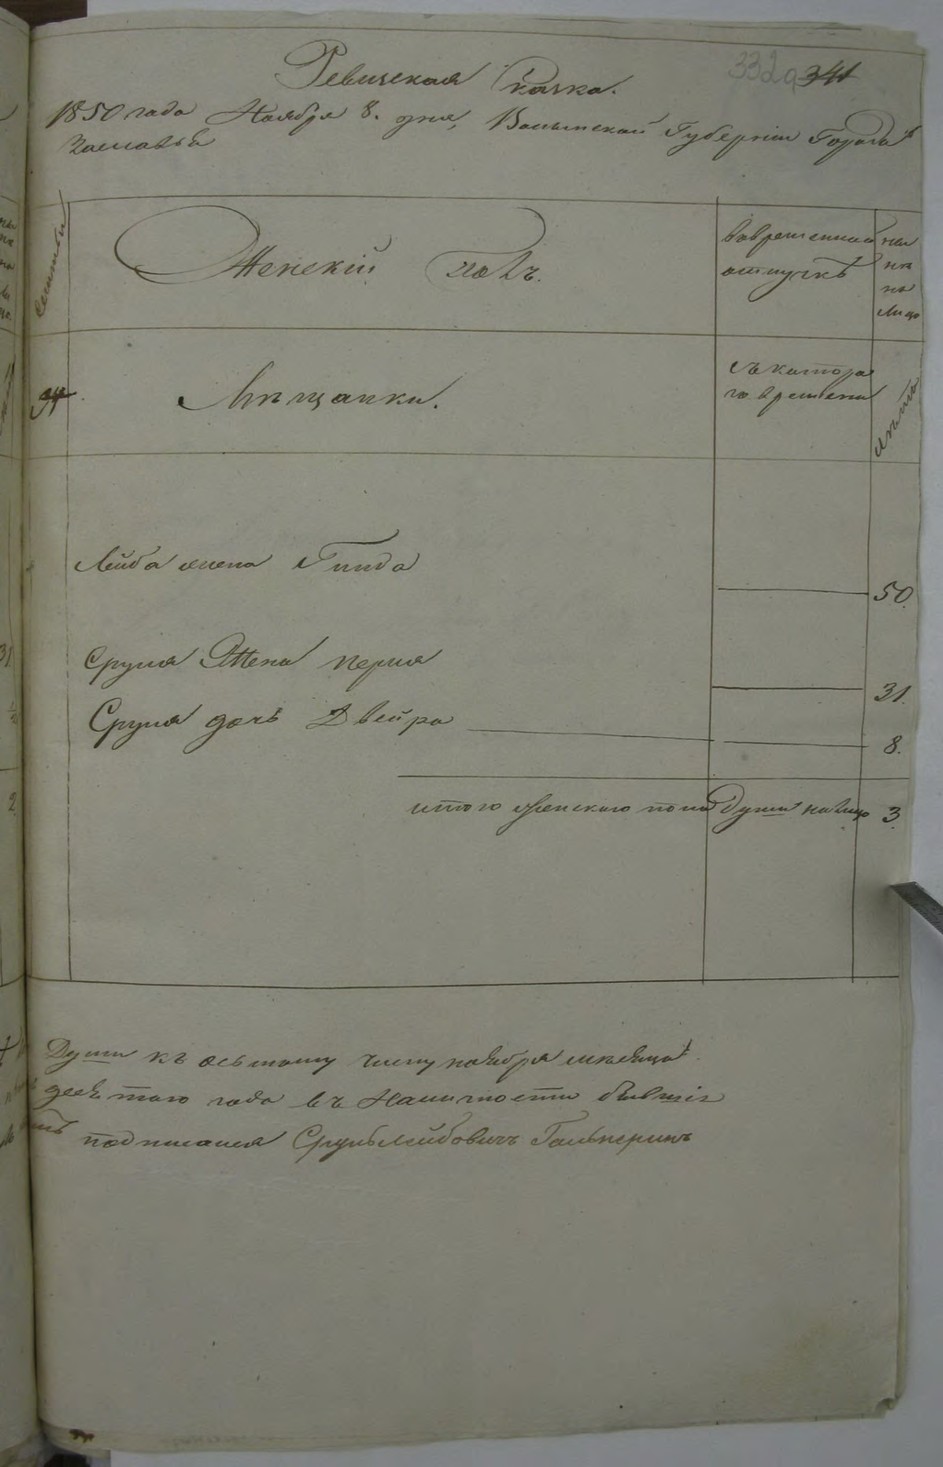 332а 341
Ревизская Сказка.
1850 года Ноября 8. дня, Волынской Губернии Города
Заславля
Семьи
Женский полъ.
Вовременной
отлучкѣ
на
лицо
94.
Мѣщанки.
съ которо
го времени
Лѣта
Лейба жена Гинда
50.
Сруля Жена Перля
31.
Сруля дочь Двейра
8.
итого женскаго пола Души налицо 3.
Души къ осьмому числу ноября мѣсяца
года въ Наличности бывшіе
подписался Сруль Лейбовичъ Гальперинъ
31
2